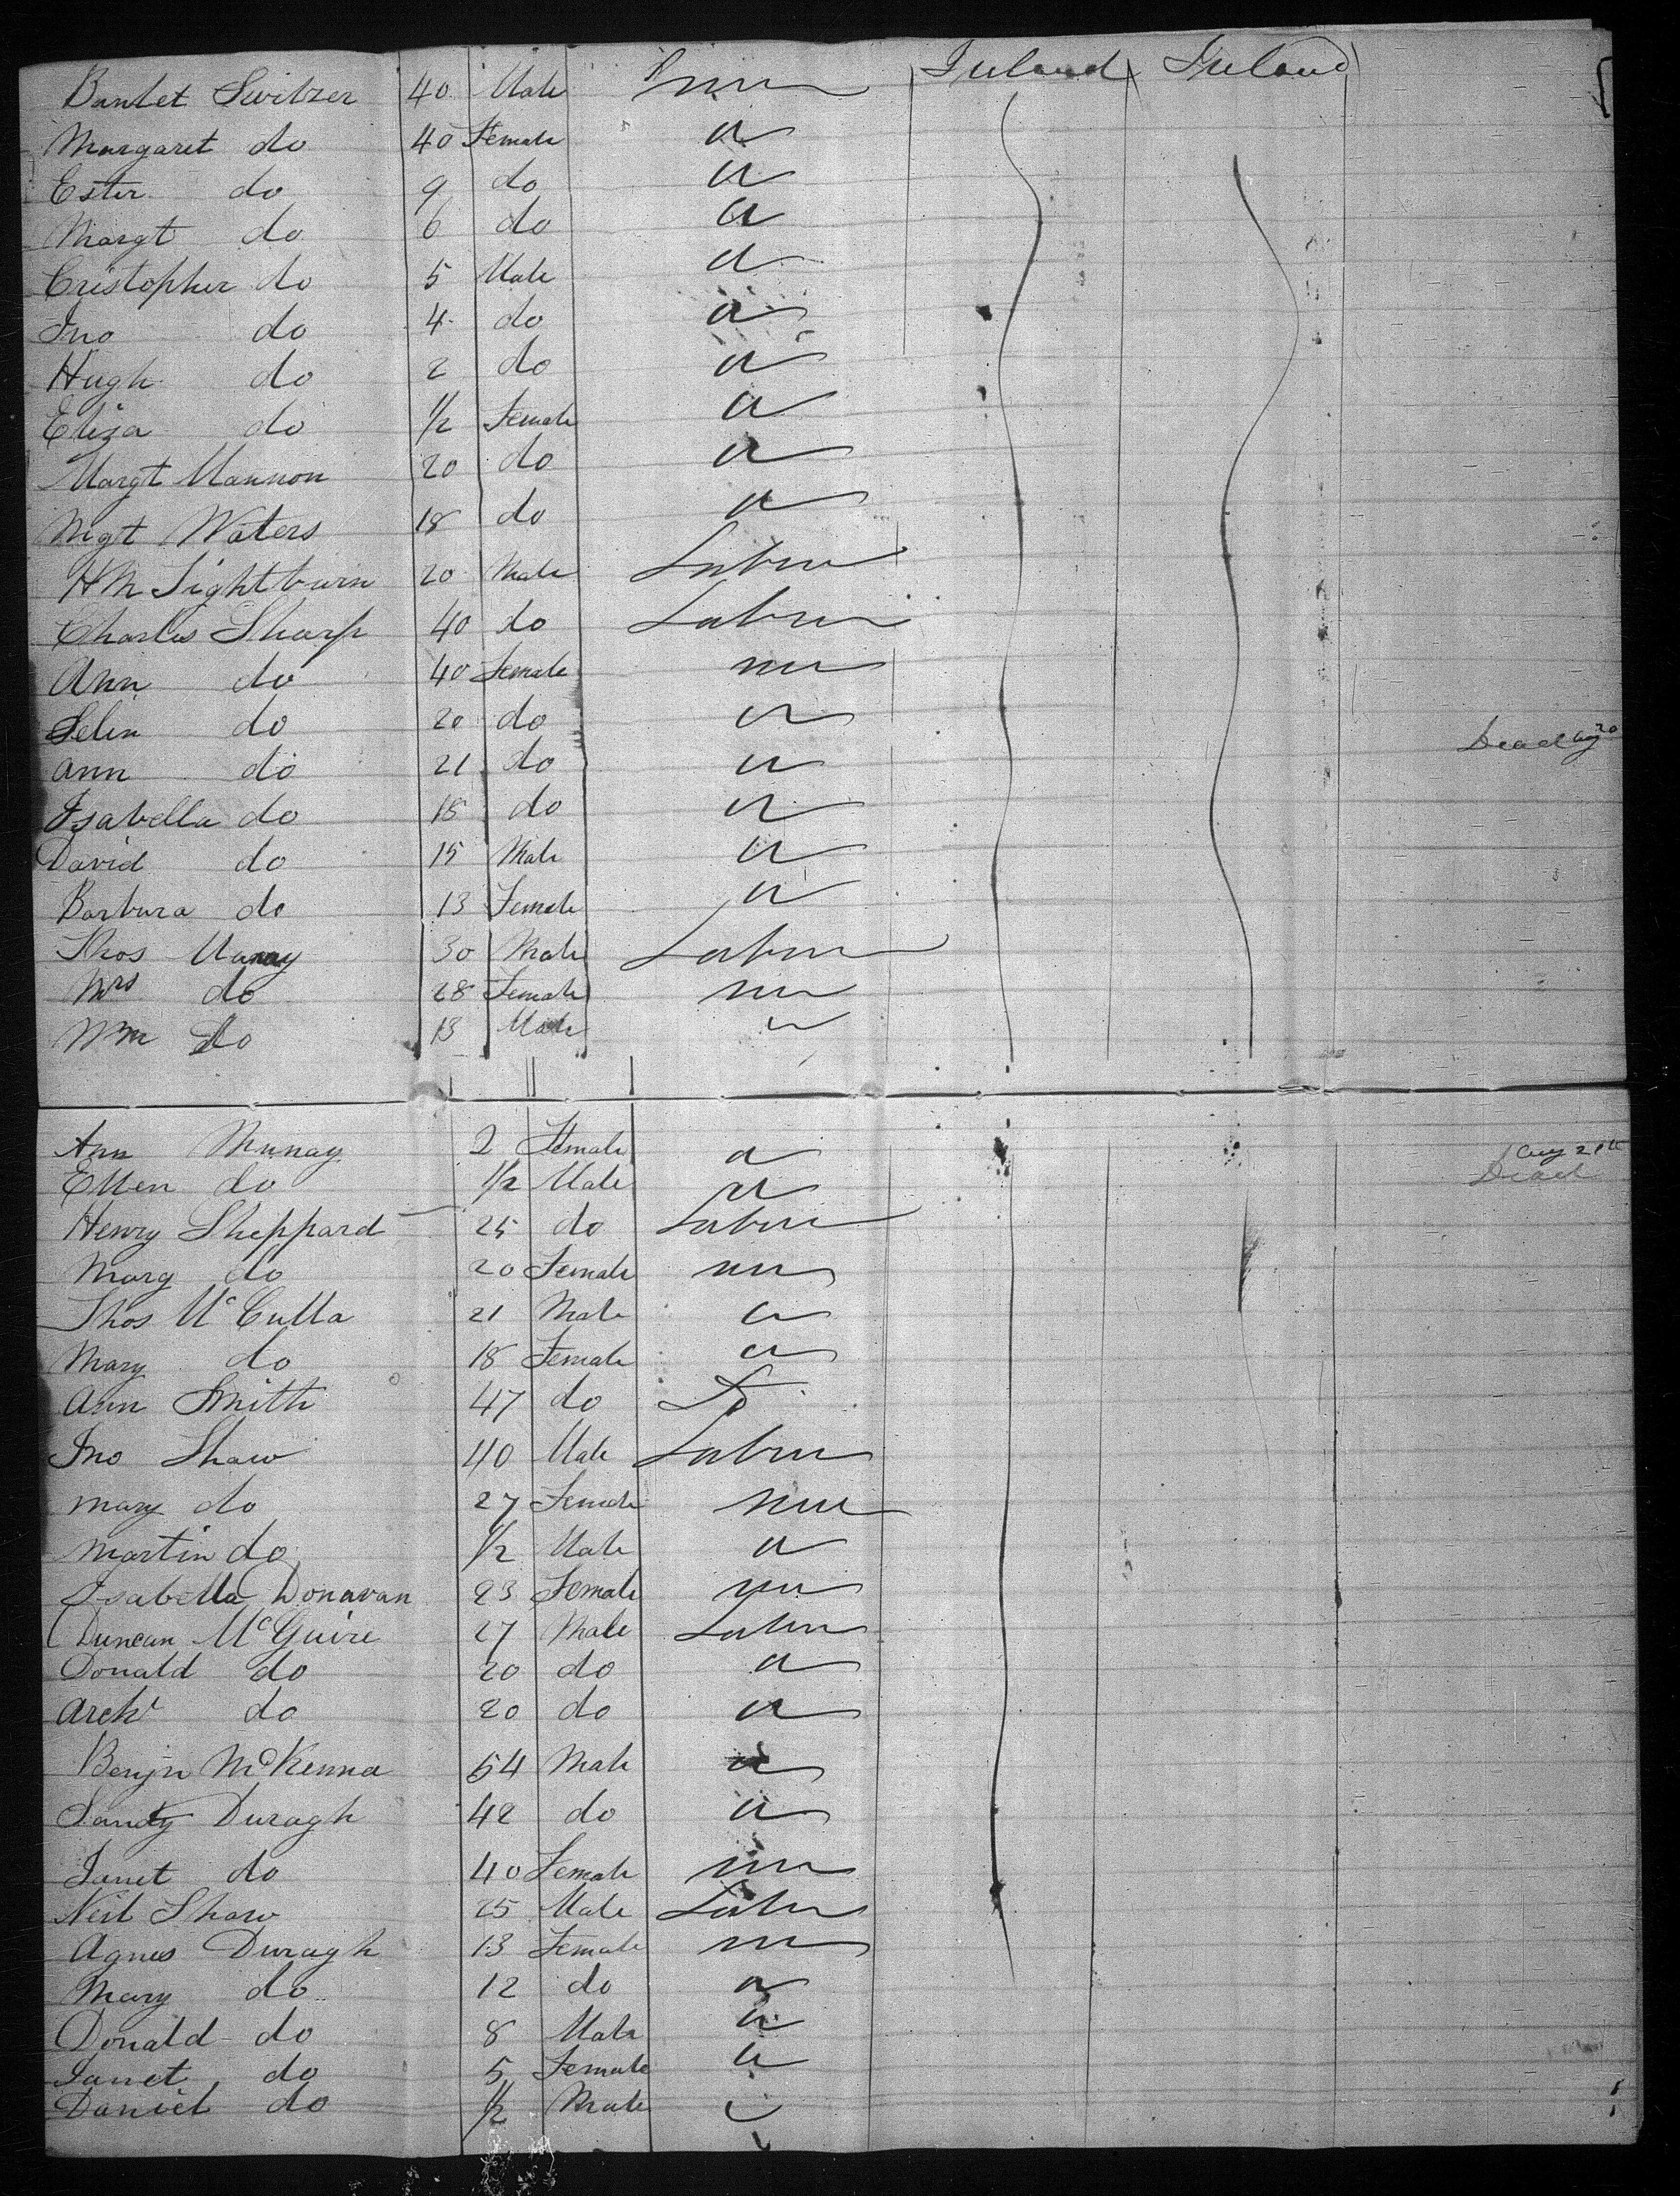 Switzer 40 Male Ireland Ireland
Margaret do 40 Female "
Ester do 9 do "
Margt do 6 do "
Cristopher do 5 Male "
Jno do 4 do "
Hugh do 2 do "
Eliza do 1/2 Female "
Margt Mannon 20 do "
Mgt Waters 18 do "
Lightburn 20 Male Labrer
Charles Sharp 40 do Labrer
Ann do 40 Female
do 20 do "
Ann do 21 do " Dead Aug 20
Isabella do 18 do "
David do 15 Male "
Barbura do 13 Female "
Thos Murray 30 Male Labrer
Mrs do 28 Female
Wm do 13 Male "
Ann Murray 2 Female "
Ellen do 1/2 Male " Dead
Henry Sheppard 25 do Labrer
Mary do 20 Female
Thos McCulla 21 Male "
Mary do 18 Female "
Ann Smith 47 do
Jno Shaw 40 Male Labrer
Mary do 27 Female
Martin do 1/2 Male "
Isabella Donavan 23 Female
Duncan McGuire 27 Male Labrer
Donald do 20 do "
Archd do 20 do "
Benjn McKenna 54 Male "
Sandy Duragh 42 do "
Janet do 40 Female
Neil Shaw 25 Male Labrer
Agnes Duragh 13 Female
Mary do 12 do "
Donald do 8 Male "
Janet do 5 Female "
Daniel do 1/2 Male "